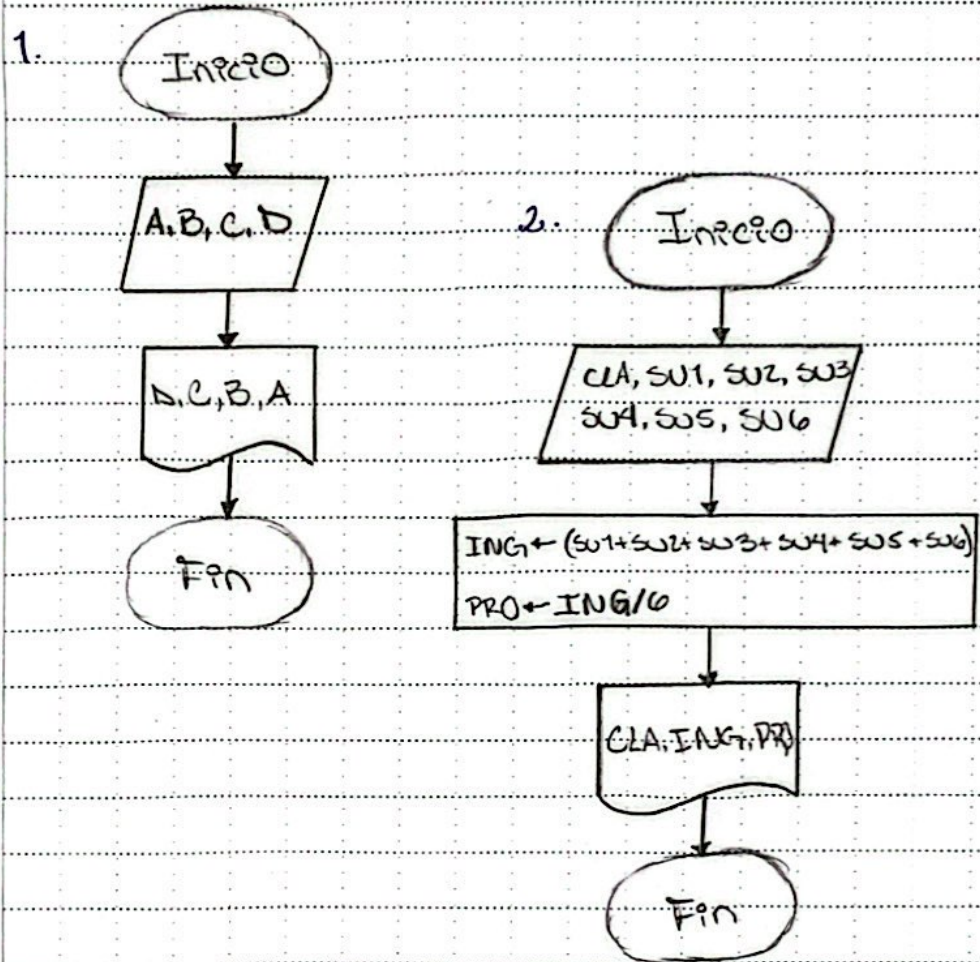 1.
Inicio
A, B, C, D
D, C, B, A
Fin
2.
Inicio
CLA, SU1, SU2, SU3
SU4, SU5, SU6
ING ← (SU1+SU2+SU3+SU4+SU5+SU6)
PRO ← ING/6
CLA, ING, PRO
Fin